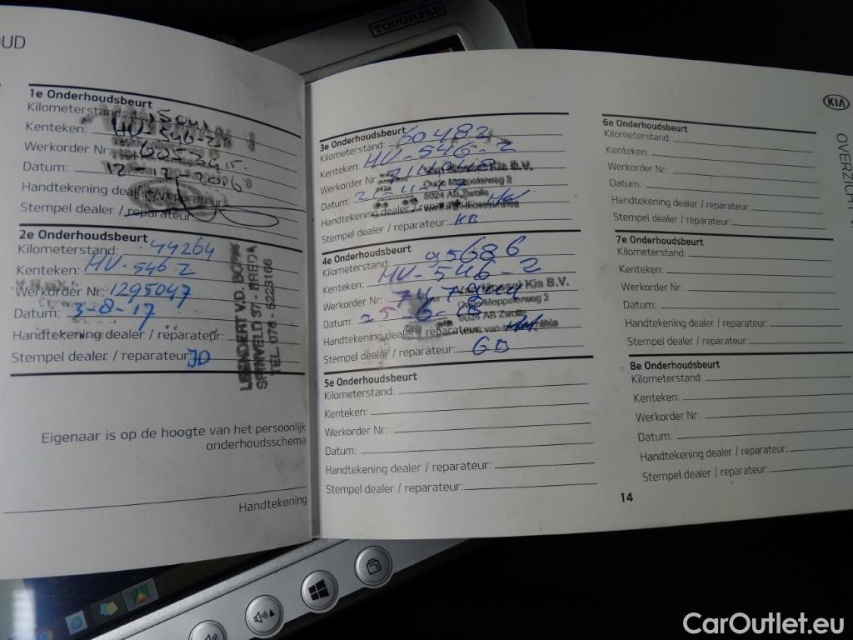 TOUGHPAD
OUD
1e Onderhoudsbeurt
Kilometerstand:
Kenteken: HV-546-Z
Werkorder Nr:
Datum: 12-12-2016
Handtekening dealer/reparateur:
Stempel dealer / reparateur
2e Onderhoudsbeurt
Kilometerstand: 44264
Kenteken: HV-546 Z
Werkorder Nr: 1295047
Datum: 3-8-17
Handtekening dealer / reparateur:
Stempel dealer / reparateur: JD
LEENDERT V.D. BORN
SPINVELD 37 - BREDA
TEL. 076 - 5223166
Eigenaar is op de hoogte van het persoonlijk
onderhoudsschema
Handtekening
3e Onderhoudsbeurt
Kilometerstand: 60482
Kenteken: HV-546-Z
Werkorder Nr:
Kia B.V.
Oude Meppelerweg 2
Datum:
8024 AB Zwolle
Handtekening dealer / reparateur:
Stempel dealer / reparateur: KB
4e Onderhoudsbeurt
Kilometerstand: 95686
Kenteken: HV-546-Z
Werkorder Nr:
Kia B.V.
Oude Meppelerweg 2
Datum: 25-6-18
8024 AB Zwolle
Handtekening dealer / reparateur:
Stempel dealer / reparateur: GD
5e Onderhoudsbeurt
Kilometerstand:
Kenteken:
Werkorder Nr:
Datum:
Handtekening dealer / reparateur:
Stempel dealer / reparateur:
KIA
6e Onderhoudsbeurt
Kilometerstand:
Kenteken:
Werkorder Nr:
Datum:
Handtekening dealer / reparateur:
Stempel dealer / reparateur:
7e Onderhoudsbeurt
Kilometerstand:
Kenteken:
Werkorder Nr:
Datum:
Handtekening dealer / reparateur:
Stempel dealer / reparateur:
8e Onderhoudsbeurt
Kilometerstand:
Kenteken:
Werkorder Nr:
Datum:
Handtekening dealer / reparateur:
Stempel dealer / reparateur:
14
OVERZICHT
CarOutlet.eu